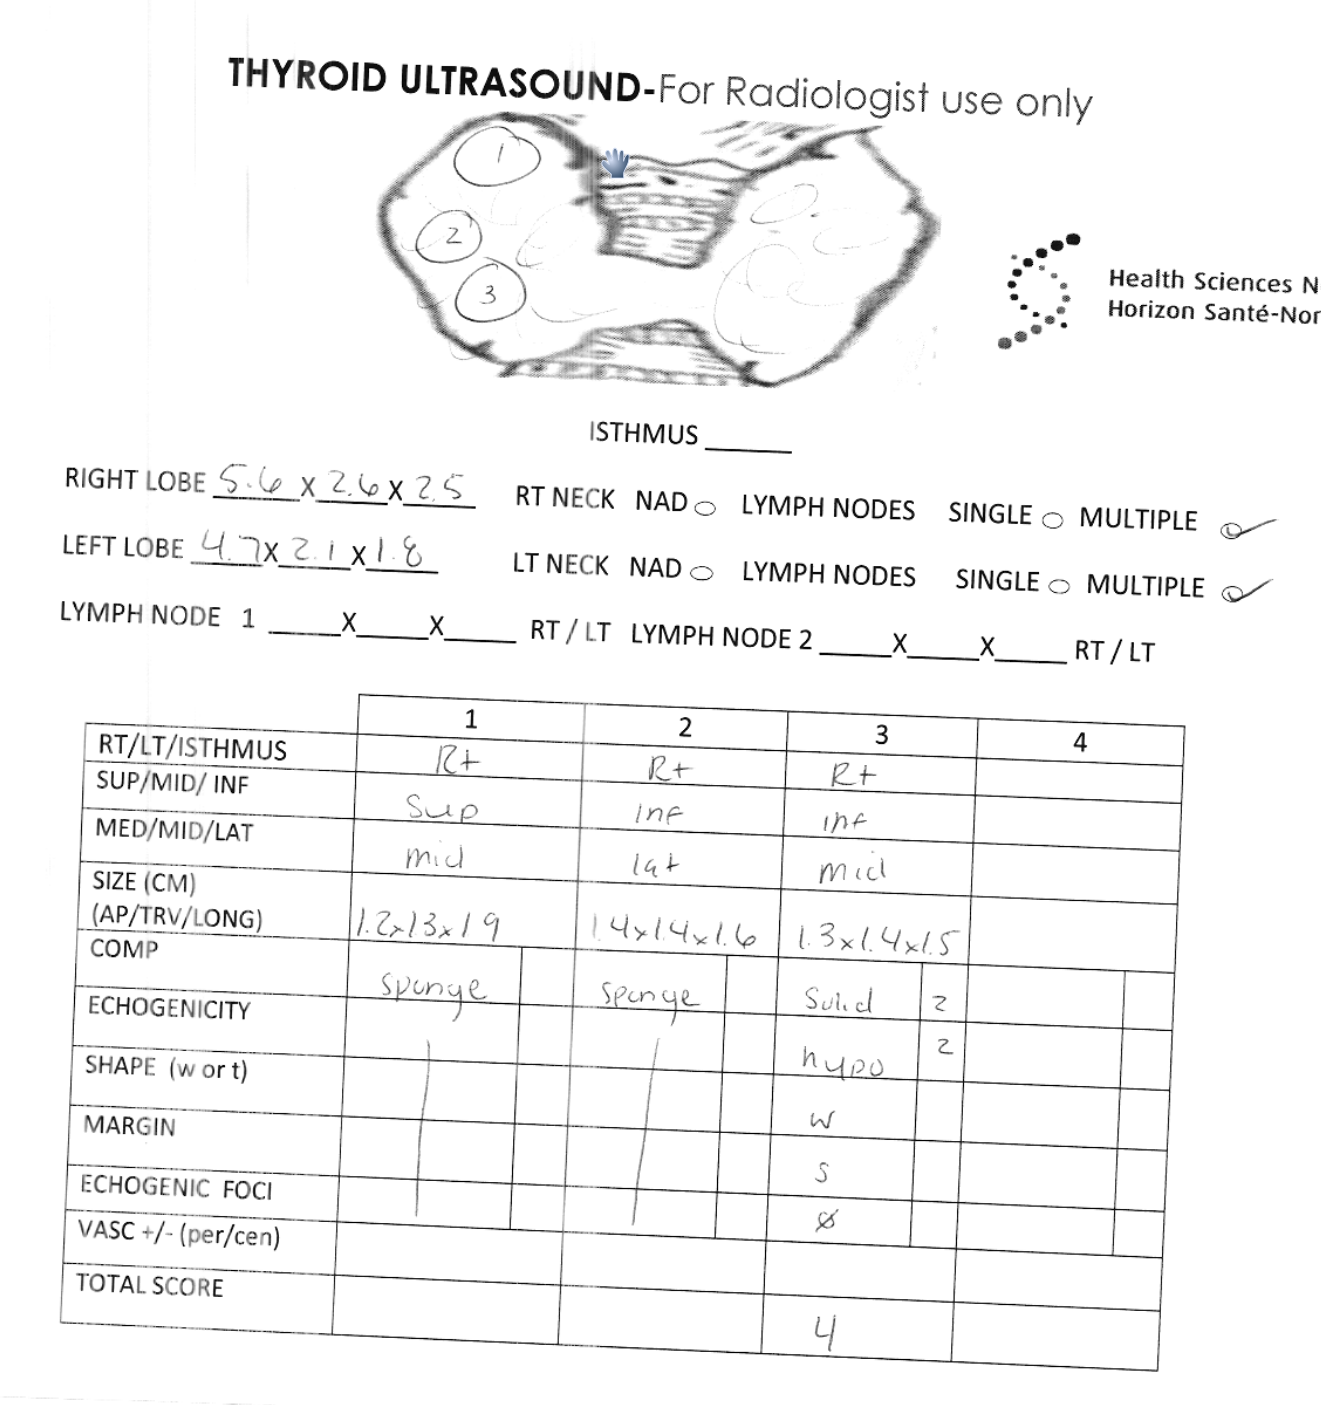 THYROID ULTRASOUND-For Radiologist use only
1
2
3
Health Sciences N
Horizon Santé-Nor
ISTHMUS ______
RIGHT LOBE 5.6 X 2.6 X 2.5 RT NECK NAD LYMPH NODES SINGLE MULTIPLE ✓
LEFT LOBE 4.7 X 2.1 X 1.8 LT NECK NAD LYMPH NODES SINGLE MULTIPLE ✓
LYMPH NODE 1 _____X_____X_____ RT / LT LYMPH NODE 2 _____X_____X_____ RT / LT
1 2 3 4
RT/LT/ISTHMUS Rt Rt Rt
SUP/MID/ INF Sup inf inf
MED/MID/LAT mid lat mid
SIZE (CM)
(AP/TRV/LONG) 1.2x1.3x1.9 1.4x1.4x1.6 1.3x1.4x1.5
COMP sponge sponge Solid 2
ECHOGENICITY hypo 2
SHAPE (w or t) w
MARGIN S
ECHOGENIC FOCI Ø
VASC +/- (per/cen)
TOTAL SCORE 4